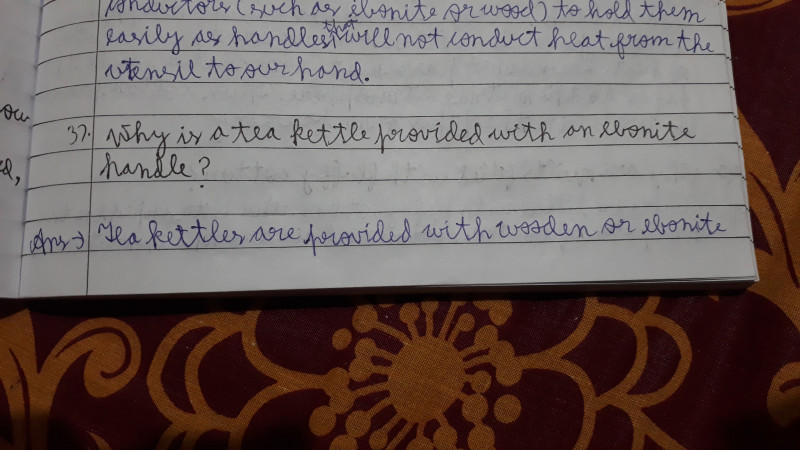 conductors (such as ebonite or wood) to hold them
easily as handles that will not conduct heat from the
utensil to our hand.
ou
37. Why is a tea kettle provided with an ebonite
handle?
Ans → Tea kettles are provided with wooden or ebonite